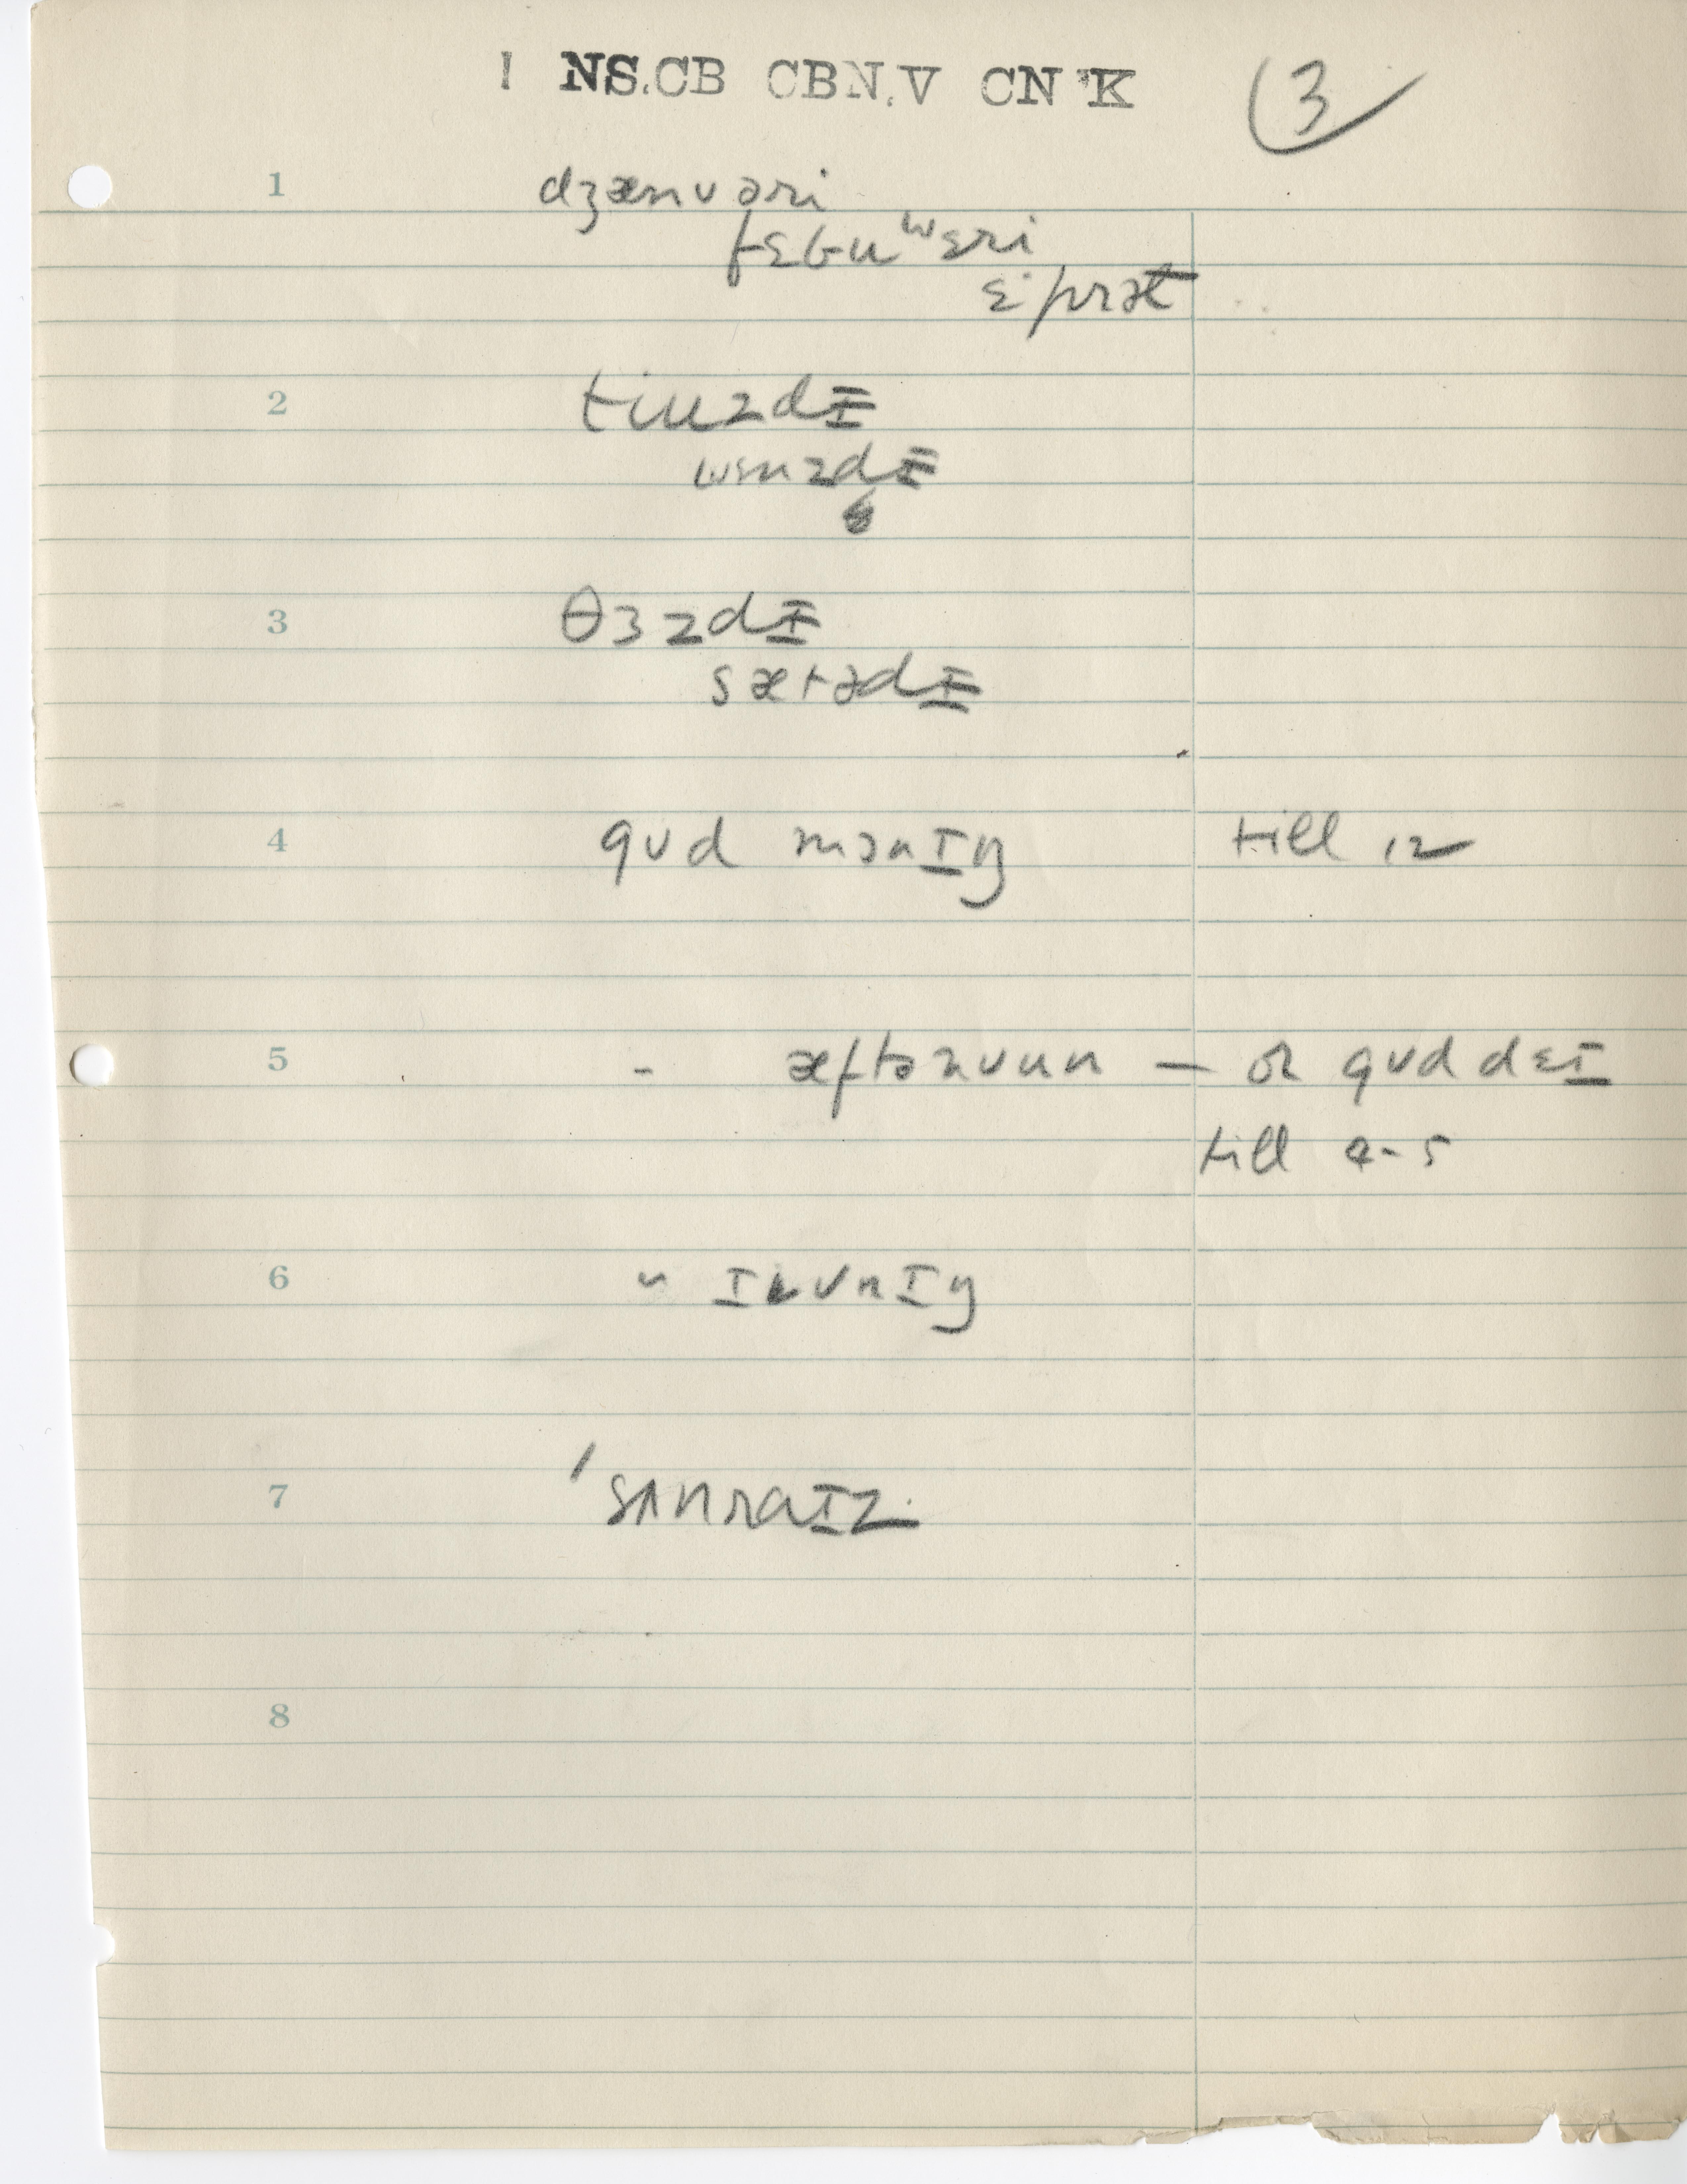 I NS.CB CBN.V CN K 3
1 dʒænvəri
fɛbuʷɛri
eiprət
2 tiuzdɪ
wɛnzdɪ
3 θɜzdɪ
sætədɪ
4 gʊd mɔnɪŋ till 12
5 - æftənuun — or gʊd dɛɪ
till 4-5
6 " ivnɪŋ
7 'sʌnraɪz
8